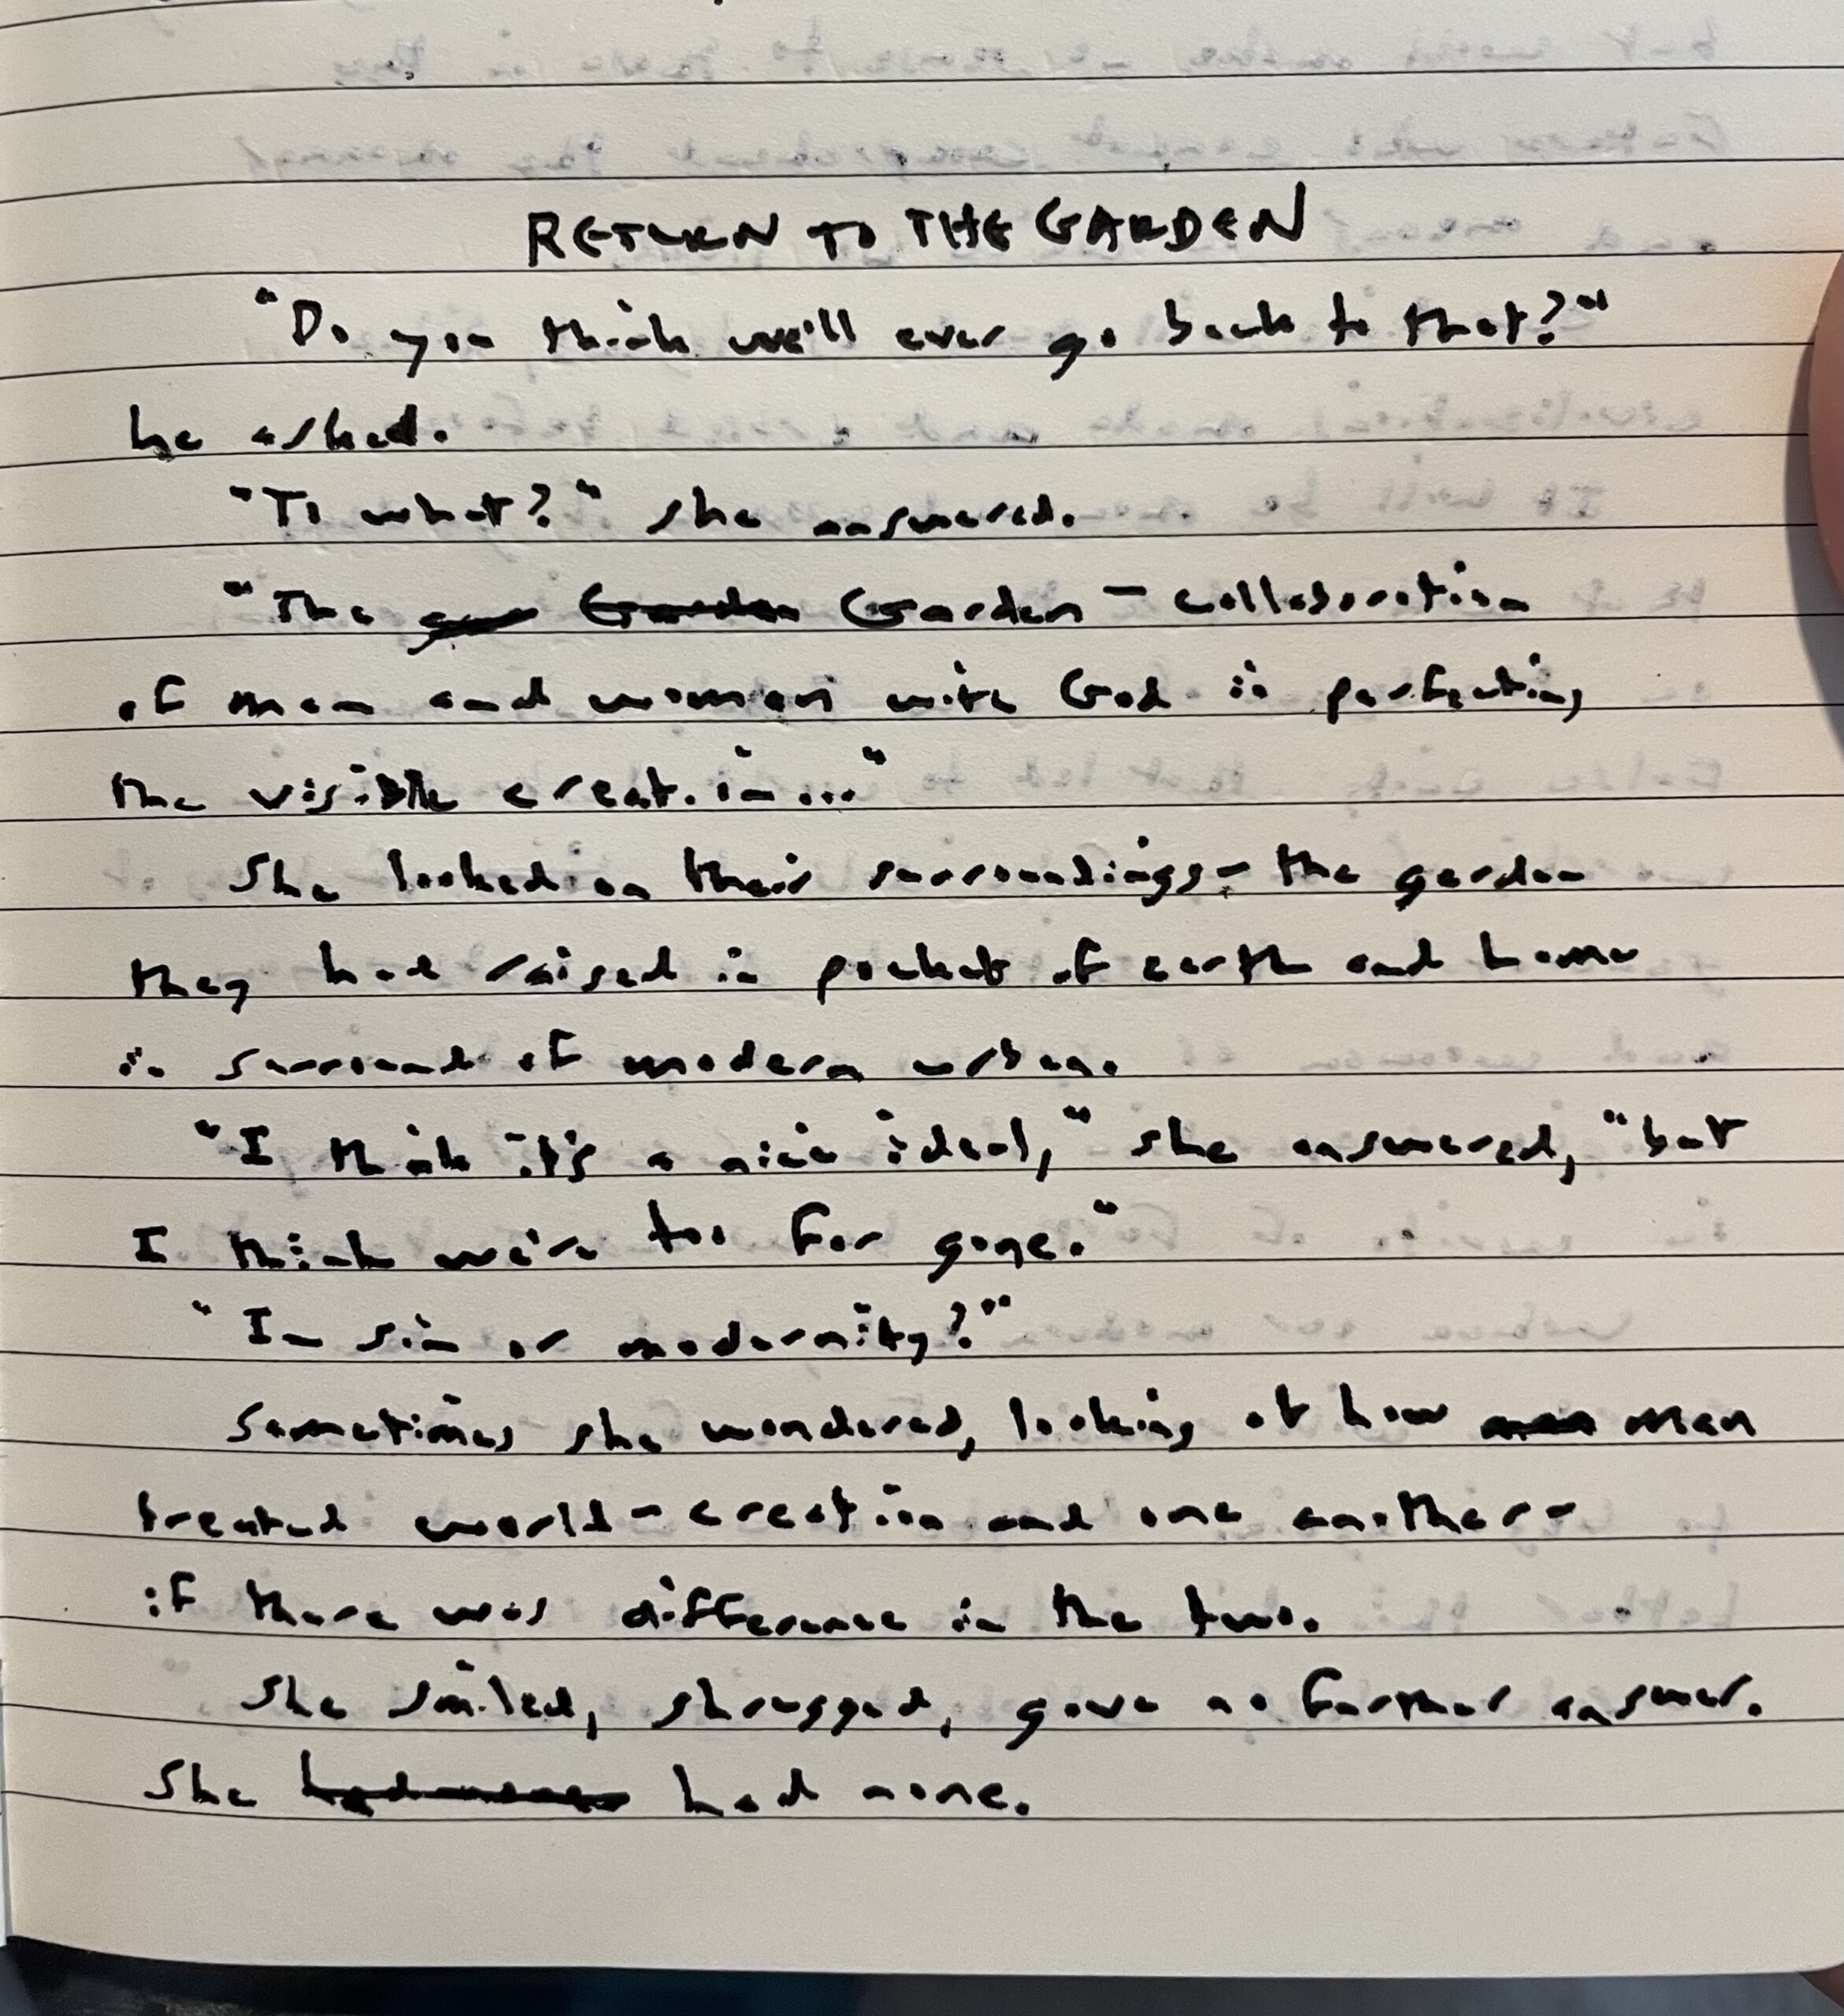 RETURN TO THE GARDEN
"Do you think we'll ever go back to that?"
he asked.
"To what?" she answered.
"The Garden Garden - collaboration
of man and woman with God in perfecting
the visible creation..."
She looked on their surroundings - the garden
they had raised in pocket of earth and home
in surround of modern urban.
"I think it's a nice ideal," she answered, "but
I think we're too far gone."
"In sin or modernity?"
Sometimes she wondered, looking at how man
treated world - creation and one another -
if there was difference in the two.
She smiled, shrugged, gave no further answer.
She had none.